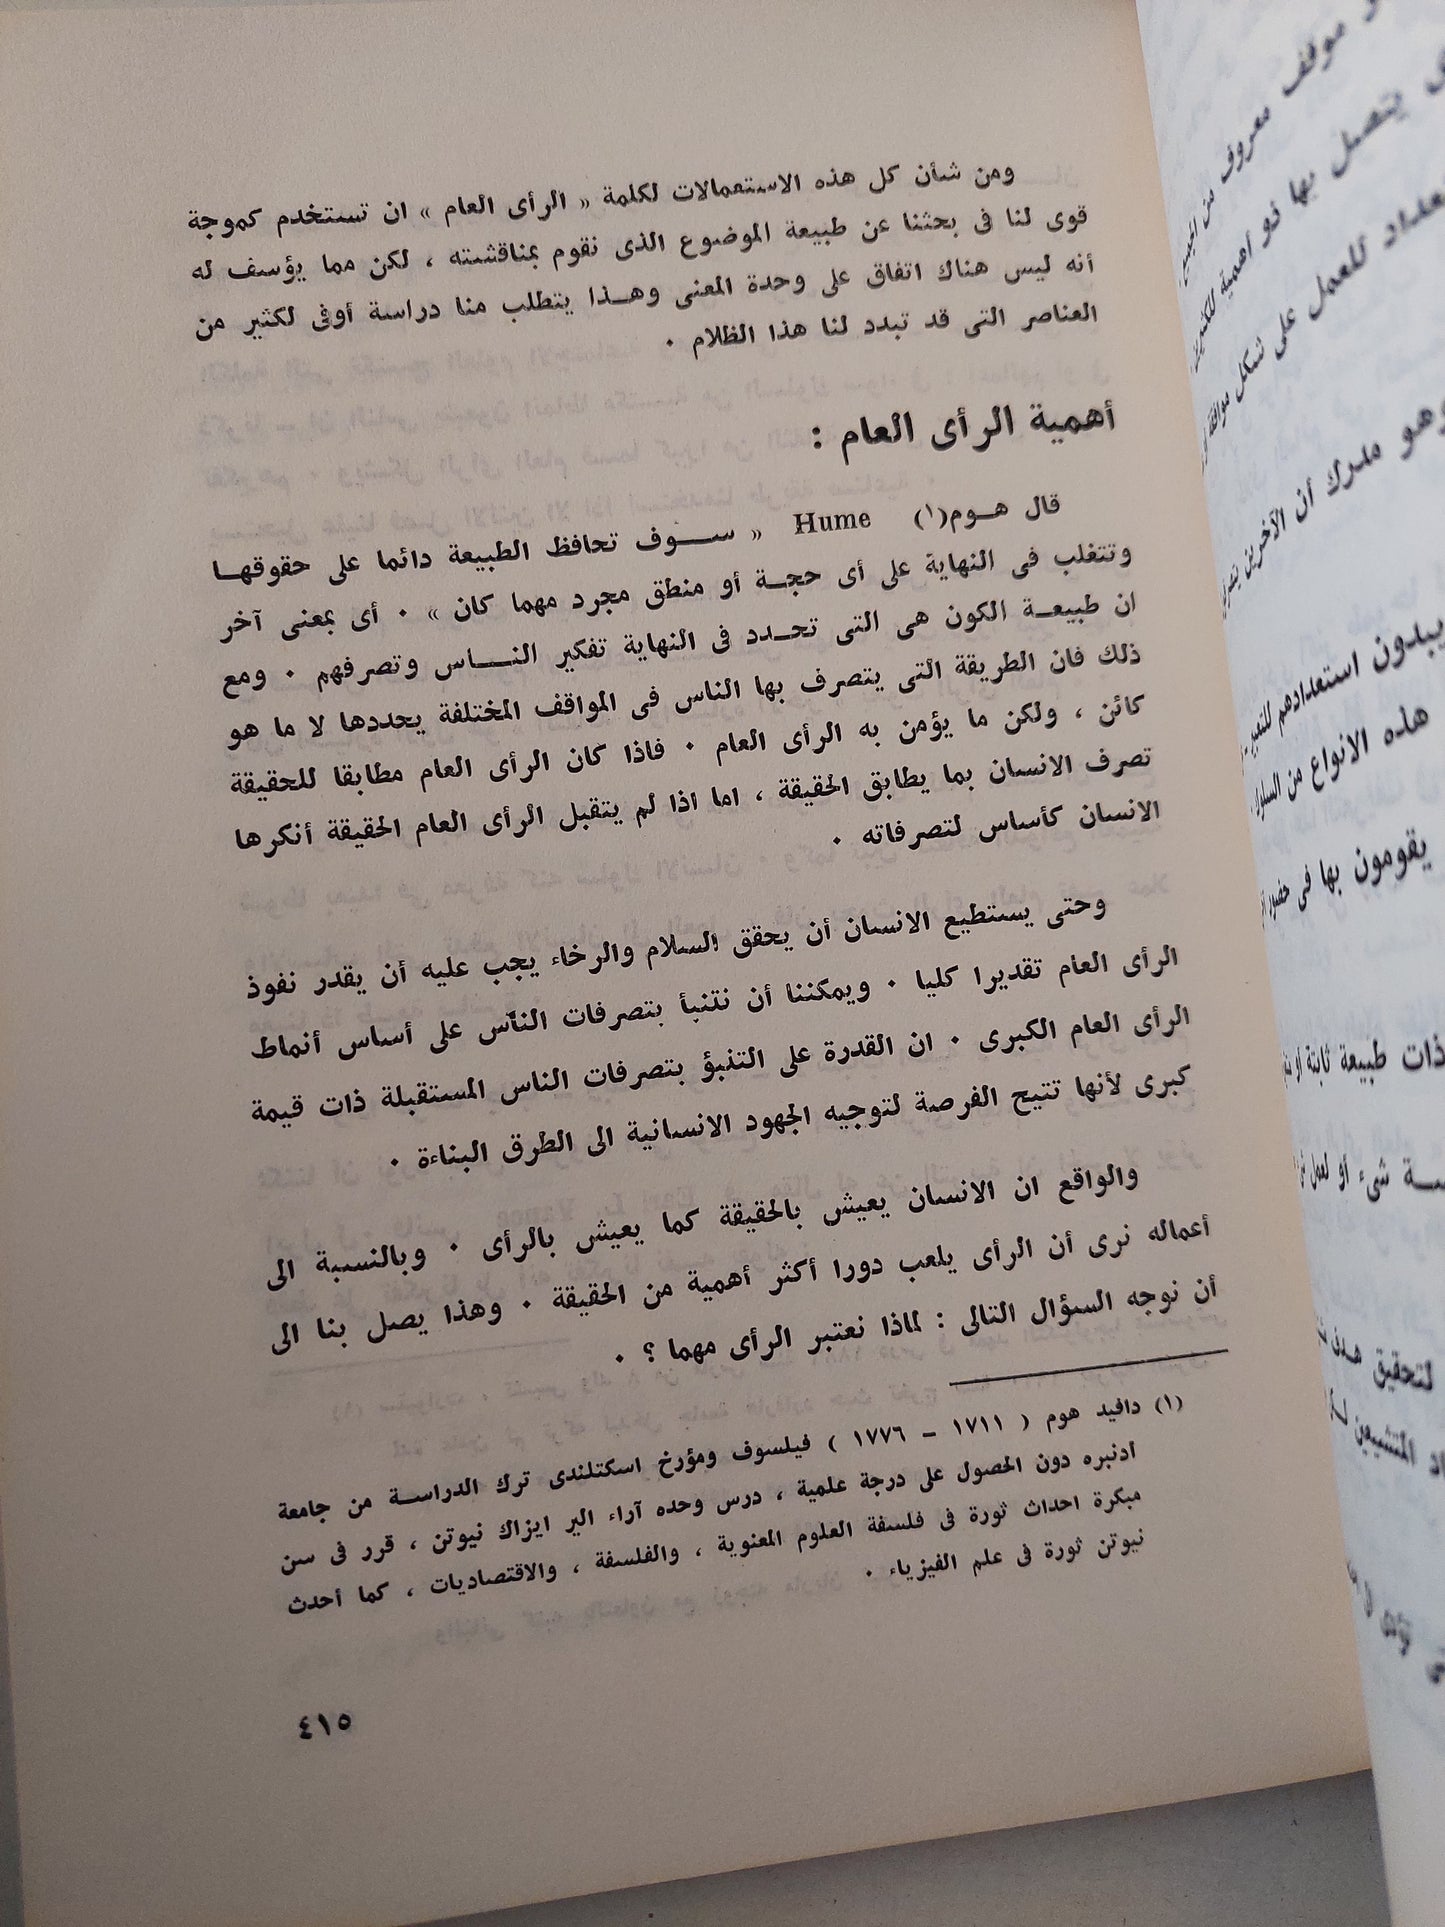 ومن شأن كل هذه الاستعمالات لكلمة « الرأى العام » ان تستخدم كموجة
قوى لنا فى بحثنا عن طبيعة الموضوع الذى نقوم بمناقشته ، لكن مما يؤسف له
أنه ليس هناك اتفاق على وحدة المعنى وهــذا يتطلب منا دراسة أوفى لكثير من
العناصر التى قد تبدد لنا هذا الظلام ٠
أهمية الرأى العام :
قال هــوم(١) Hume « ســـوف تحافظ الطبيعة دائما على حقوقهــا
وتتغلب فى النهاية على أى حجــة أو منطق مجرد مهما كان » ٠ أى بمعنى آخر
ان طبيعــة الكون هى التى تحــدد فى النهاية تفكير النـــاس وتصرفهم ٠ ومع
ذلك فان الطريقة التى يتصرف بها الناس فى المواقف المختلفة يحددها لا ما هو
كائن ، ولكن ما يؤمن به الرأى العام ٠ فاذا كان الرأى العام مطابقا للحقيقة
تصرف الانسان بما يطابق الحقيقة ، اما اذا لم يتقبل الرأى العام الحقيقة أنكرها
الانسان كأساس لتصرفاته ٠
وحتى يستطيع الانسان أن يحقق السلام والرخاء يجب عليه أن يقدر نفوذ
الرأى العام تقديرا كليا ٠ ويمكننا أن نتنبأ بتصرفات الناس على أساس أنماط
الرأى العام الكبرى ٠ ان القدرة على التنبؤ بتصرفات الناس المستقبلة ذات قيمة
كبرى لأنها تتيح الفرصة لتوجيه الجهود الانسانية الى الطرق البناءة ٠
والواقع ان الانسان يعيش بالحقيقة كما يعيش بالرأى ٠ وبالنسبة الى
أعماله نرى أن الرأى يلعب دورا أكثر أهمية من الحقيقة ٠ وهذا يصل بنا الى
أن نوجه السؤال التالى : لماذا نعتبر الرأى مهما ؟ ٠
(١) دافيد هوم ( ١٧١١ – ١٧٧٦ ) فيلسوف ومؤرخ اسكتلندى ترك الدراســة من جامعة
أدنبره دون الحصول على درجة علمية ، درس وحده آراء البر ايزاك نيوتن ، قرر فى سن
مبكرة احداث ثورة فى فلسفة العلوم المعنوية ، والفلسفة ، والاقتصاديات ، كما أحدث
نيوتن ثورة فى علم الفيزياء ٠
٤١٥
موقف معروف من
يتصل بها ذو أهمية
للعمل على شكل
وهو مدرك أن الآخرين
يبدون استعدادهم
هذه الانواع من
يقومون بها فى حضور
ذات طبيعة ثابتة أو
شىء أو لعمل
لتحقيق هدف